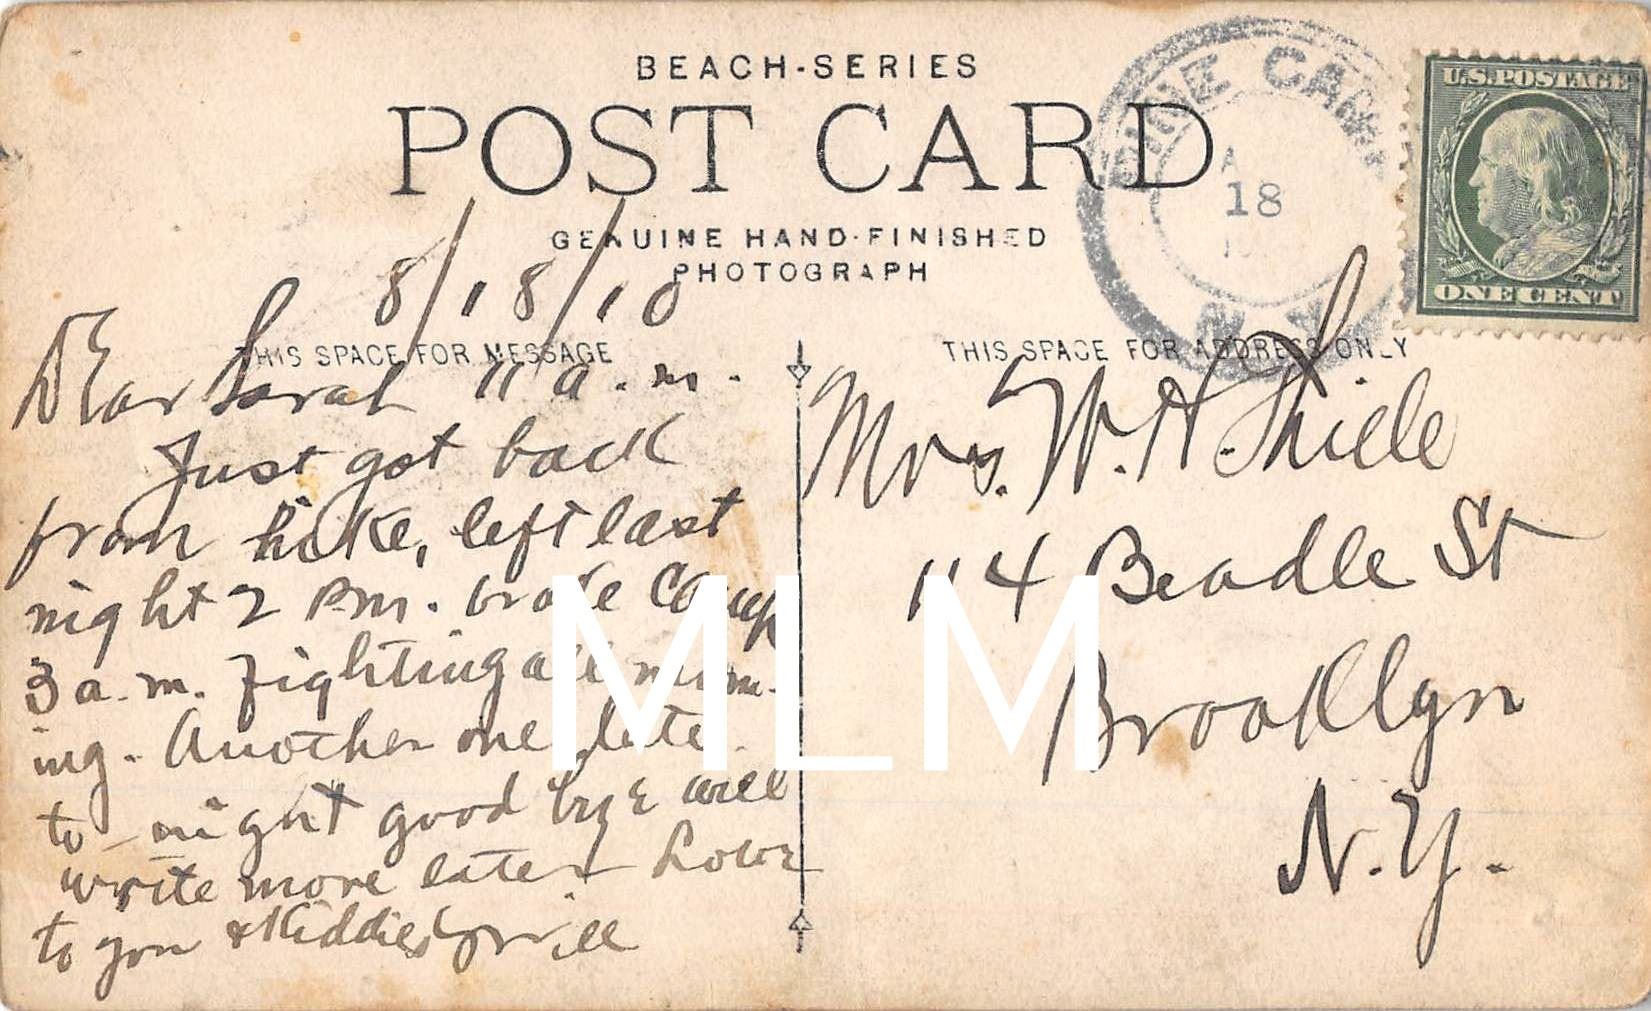 BEACH-SERIES
POST CARD
GENUINE HAND-FINISHED
PHOTOGRAPH
PINE CAMP
A
18
N.Y.
U.S. POSTAGE
ONE CENT
8/18/10
THIS SPACE FOR MESSAGE
THIS SPACE FOR ADDRESS ONLY
Dear Sarah 11 a.m.
Just got back
from hike, left last
night 2 Pm. broke Camp
3 a.m. Fighting all morn-
ing. Another one late
to-night good bye will
write more later Love
to you & Kiddies Will
Mrs. W. H. Thiele
114 Beadle St
Brooklyn
N.Y.
MLM